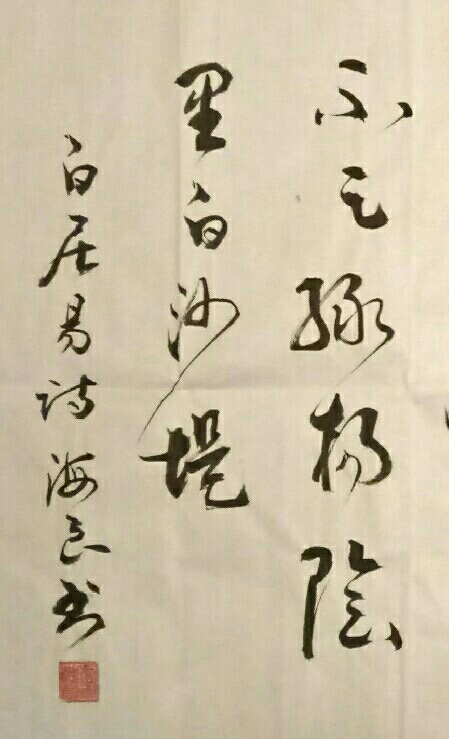 不足绿杨陰
里白沙堤
白居易诗海良书